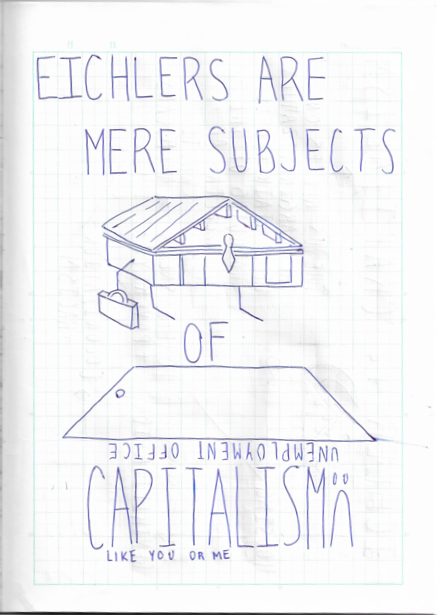 EICHLERS ARE
MERE SUBJECTS
OF
UNEMPLOYMENT OFFICE
CAPITALISM
LIKE YOU OR ME